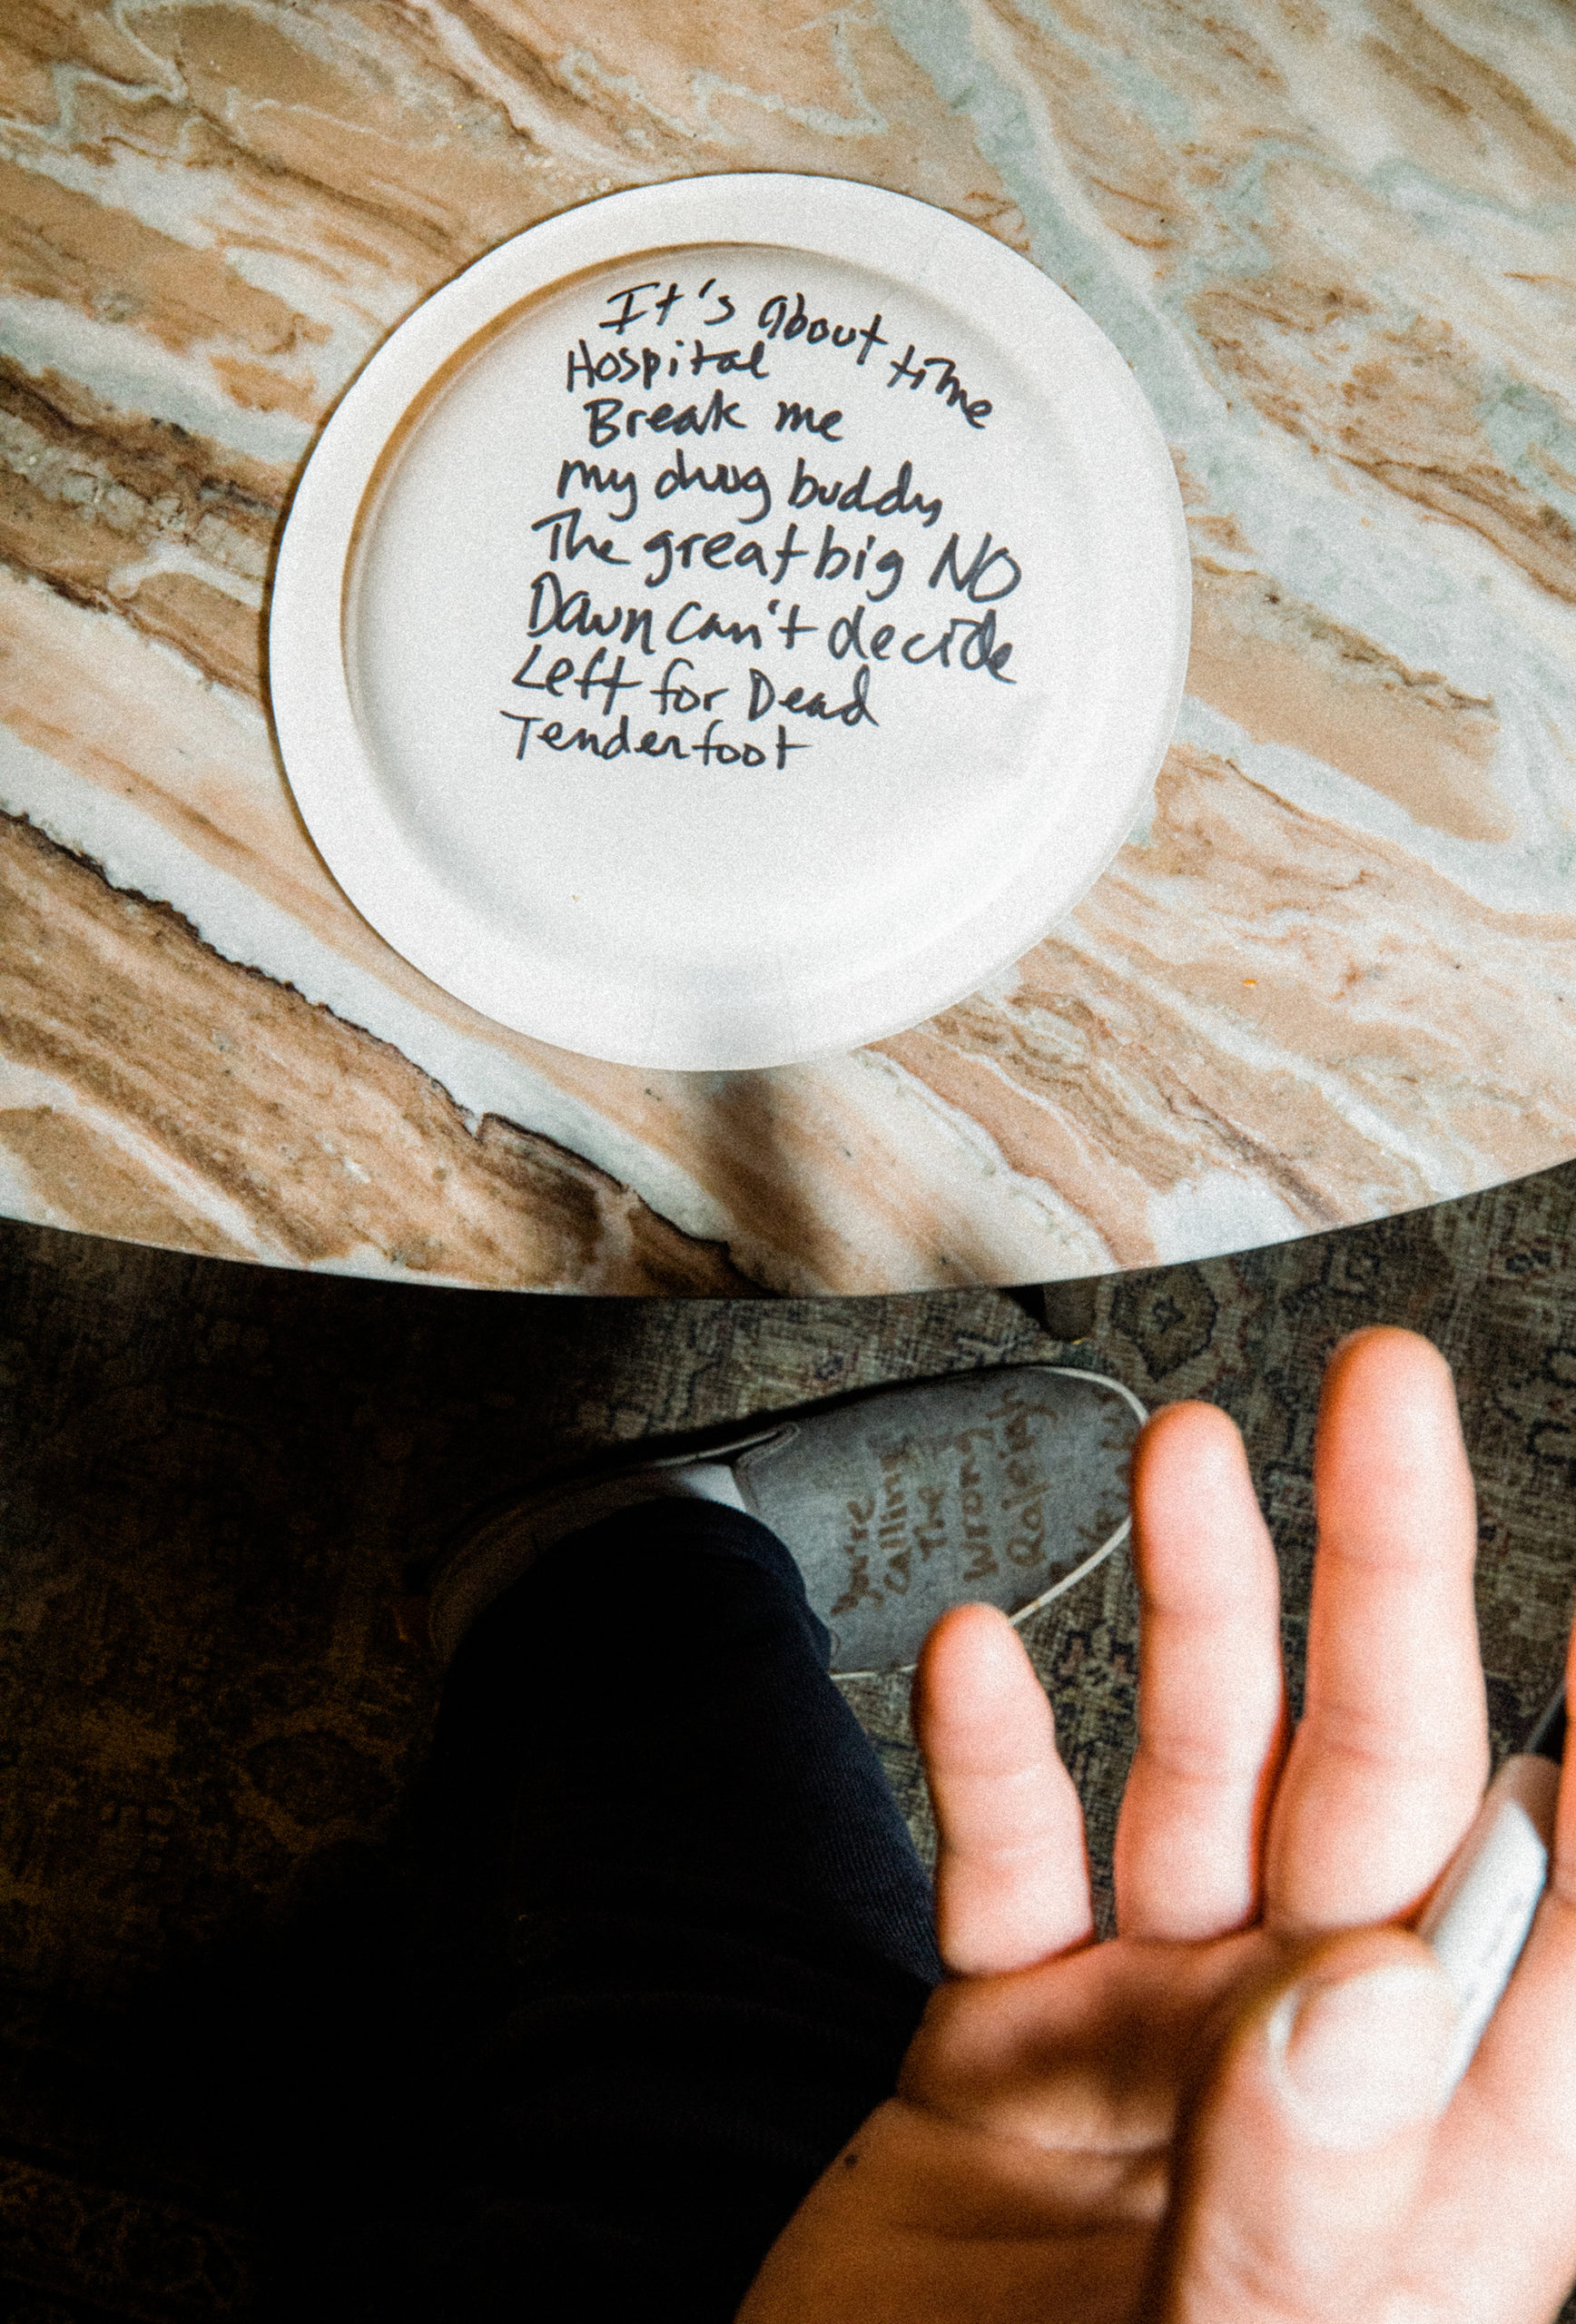 It's about time
Hospital
Break me
my drug buddy
The great big NO
Dawn can't decide
Left for Dead
Tenderfoot
you're
calling
The
wrong
Raleigh